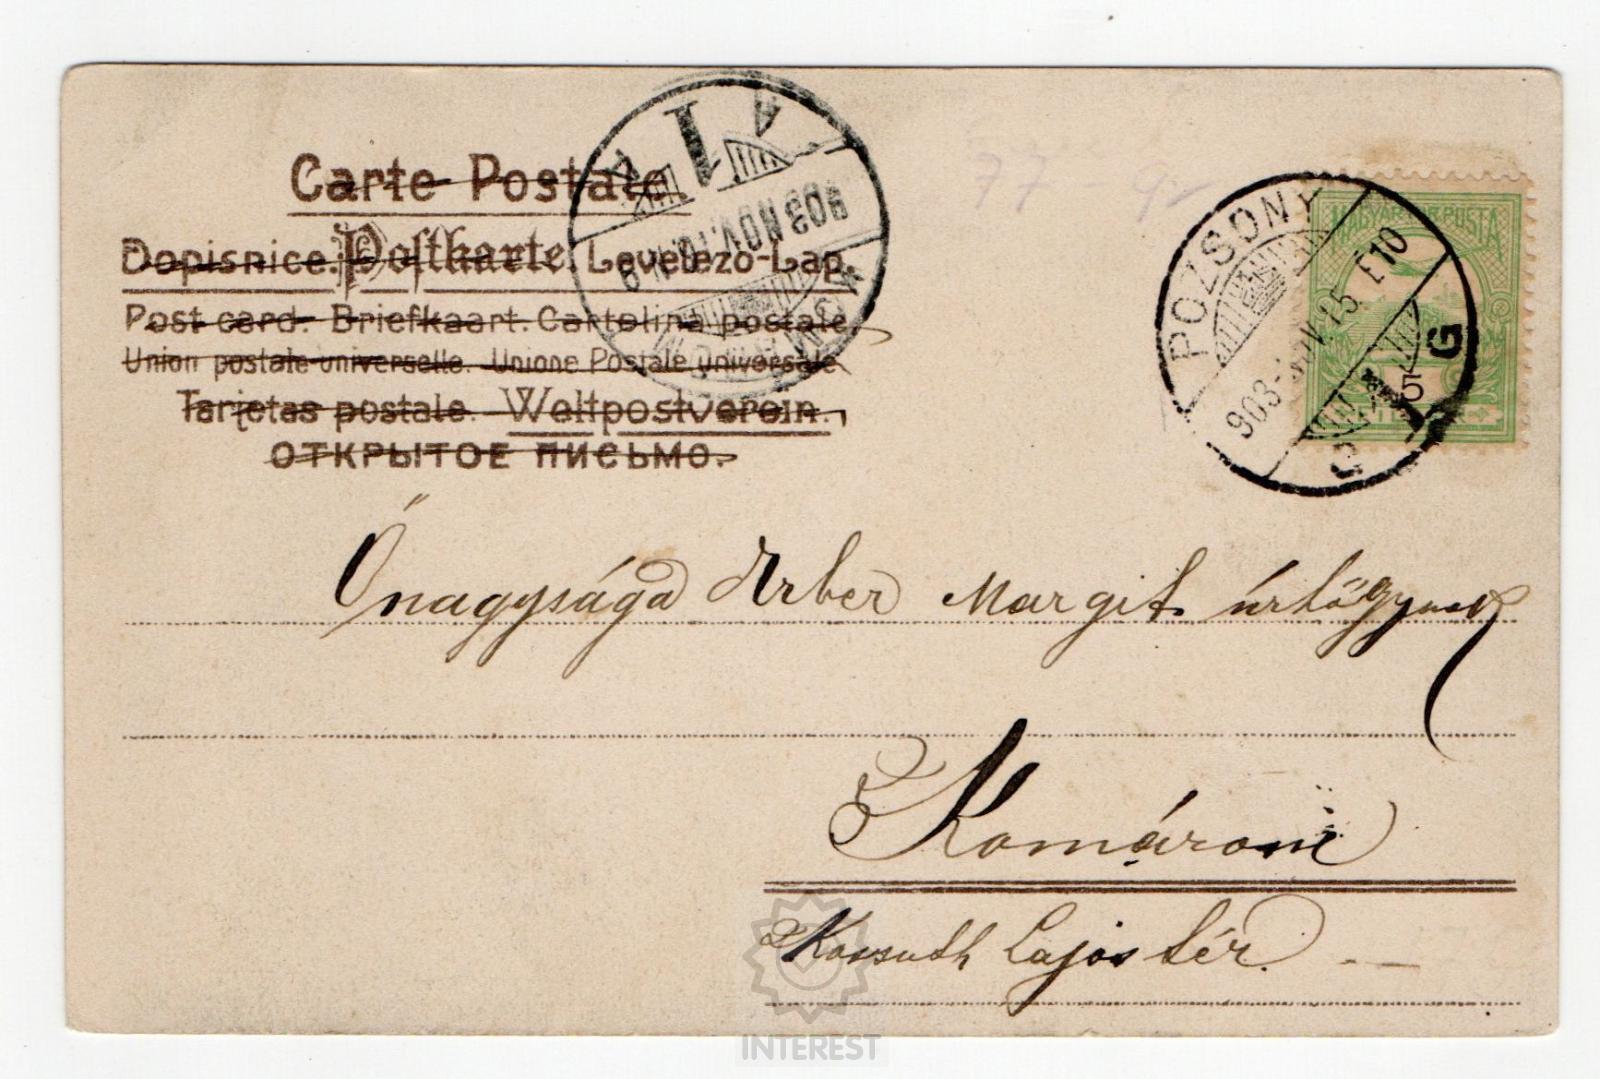 Carte Postale.
Dopisnice. Postkarte. Levelező-Lap.
Post card. Briefkaart. Cartolina postale.
Union postale universelle. Unione Postale universale
Tarjetas postale. Weltpostverein.
ОТКРЫТОЕ ПИСЬМО.
903 NOV. 16
77
POZSONY
903 15 E10
G
MAGYAR KIR. POSTA
5
Őnagysága Arber Margit úrhölgynek
Komárom
Kossuth Lajos tér.
INTEREST